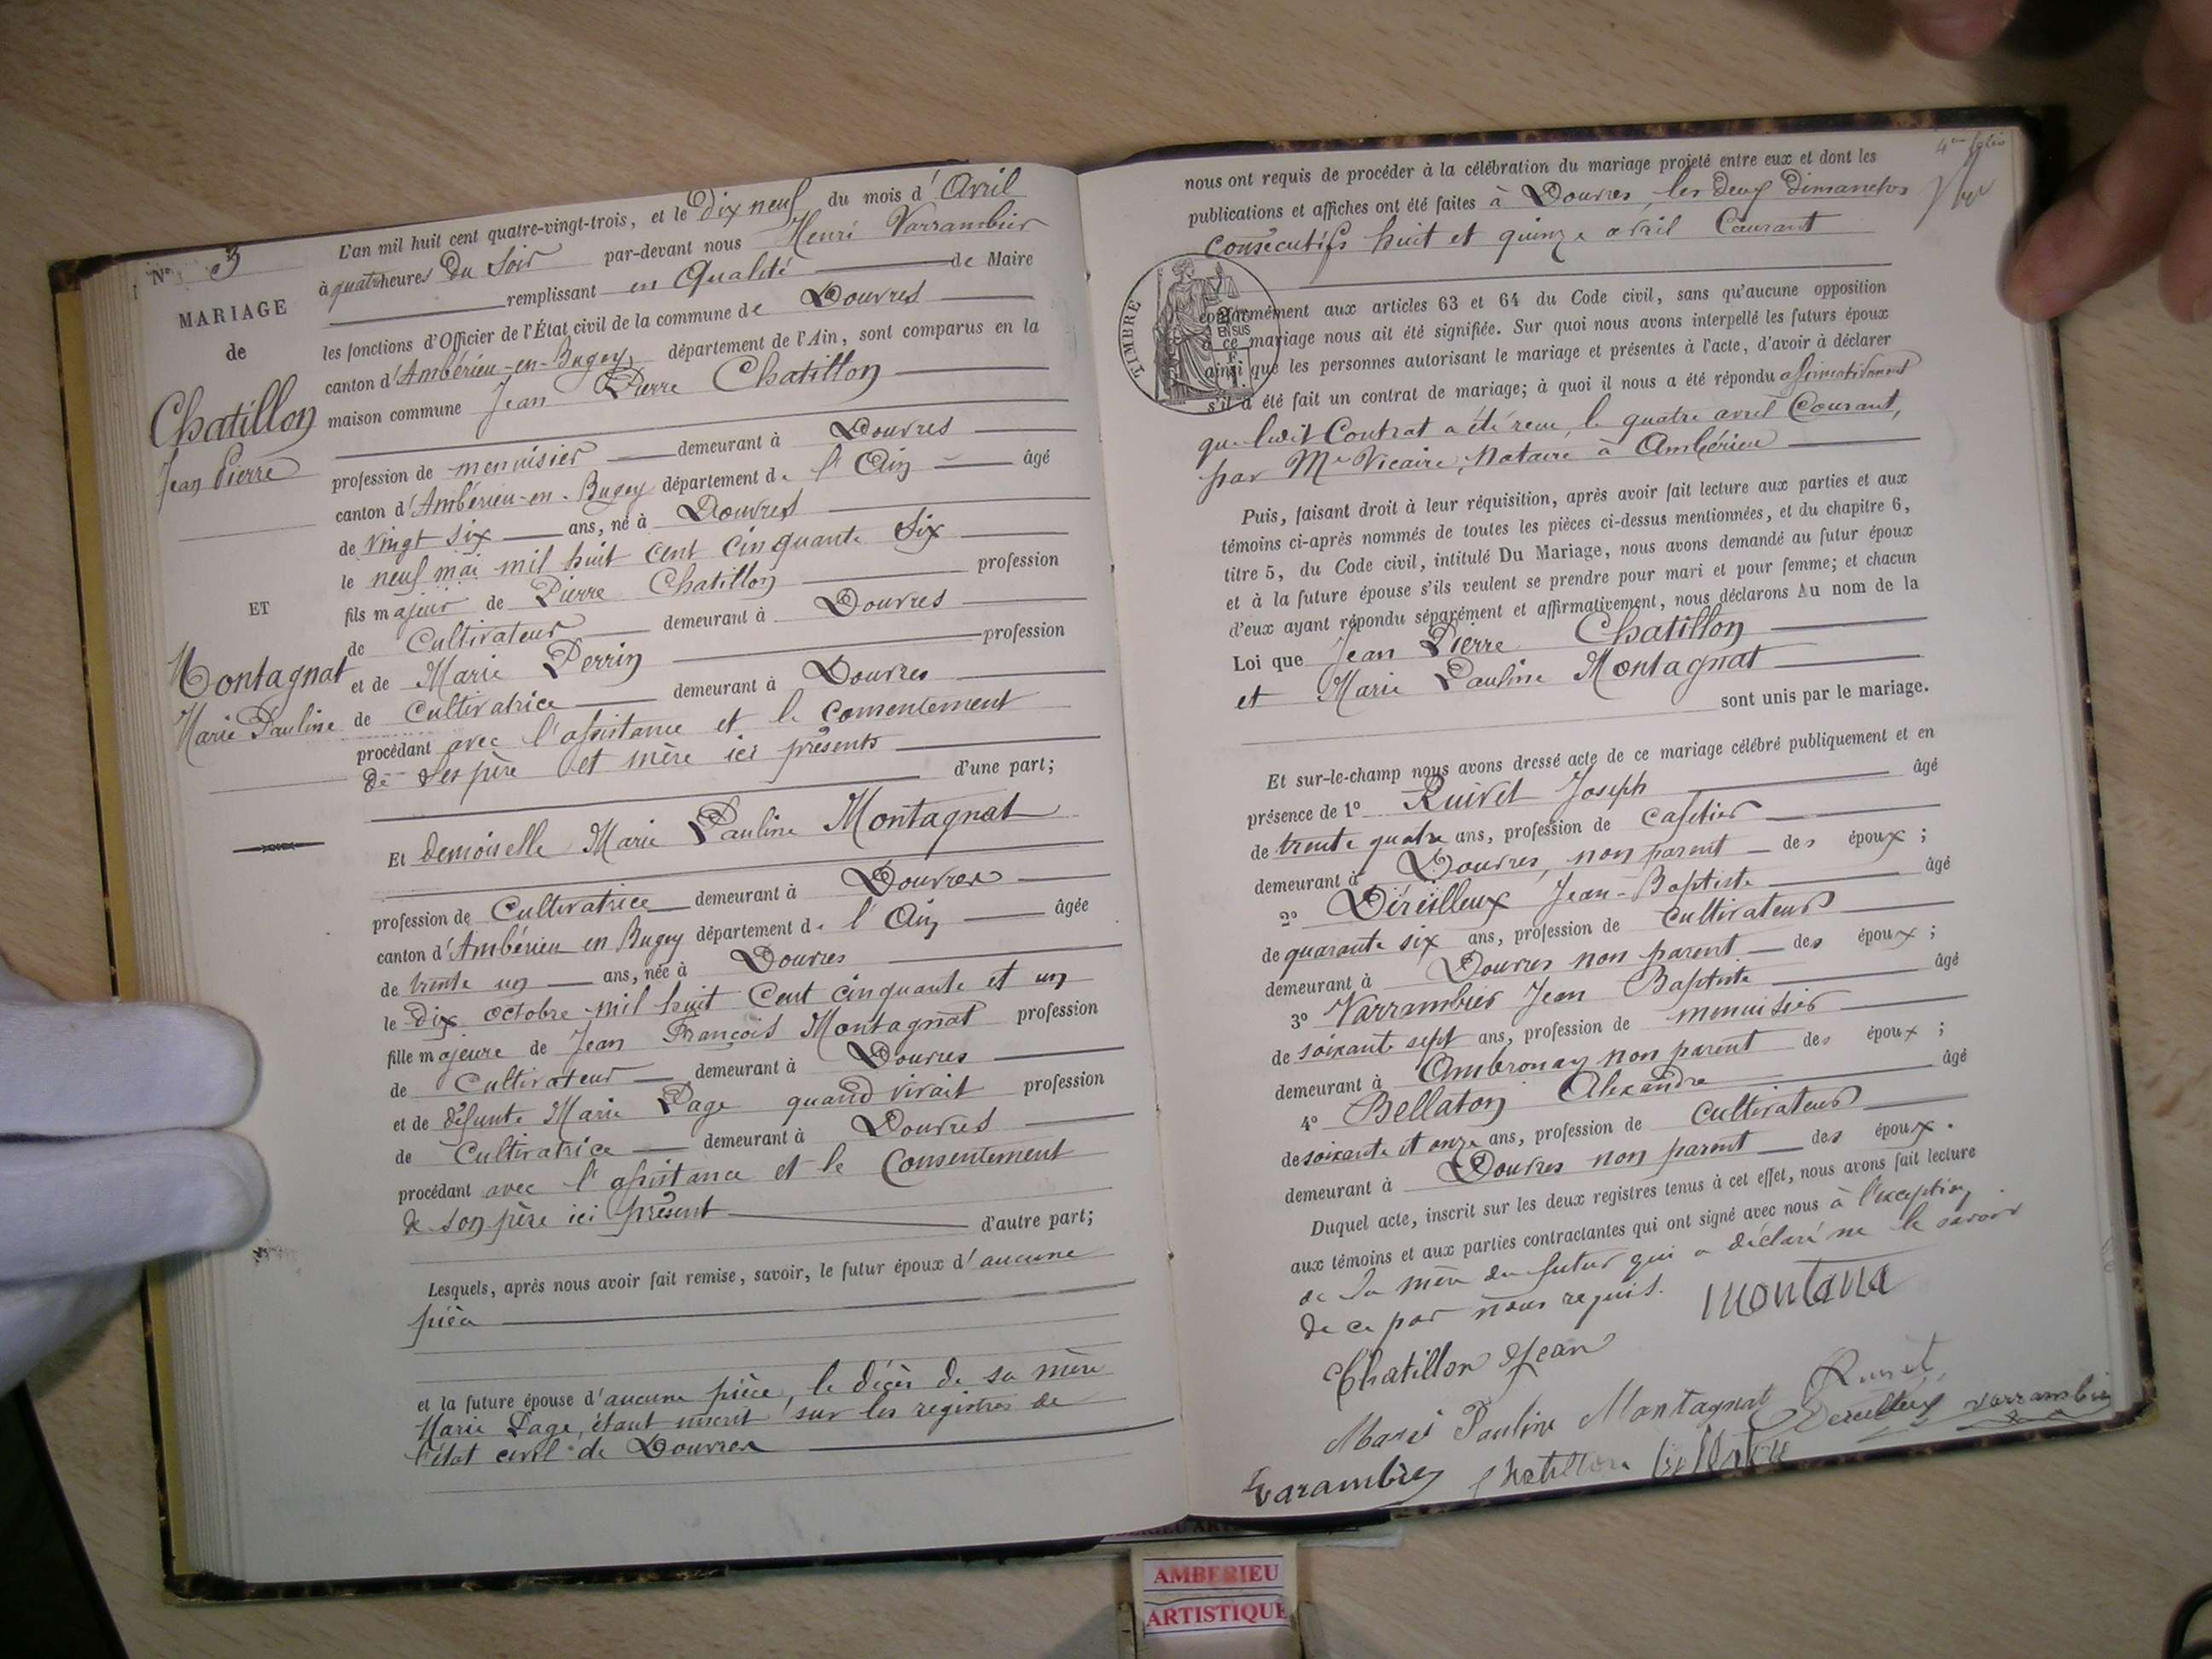 N° 3
MARIAGE
de
Chatillon
Jean Pierre
ET
Montagnat
Marie Pauline
L'an mil huit cent quatre-vingt-trois, et le dix neuf du mois d'Avril
à quatre heures du soir par-devant nous Henri Varrambier
remplissant en qualité de Maire
les fonctions d'Officier de l'État civil de la commune de Douvres
canton d'Ambérieu-en-Bugey, département de l'Ain, sont comparus en la
maison commune Jean Pierre Chatillon
profession de menuisier demeurant à Douvres
canton d'Ambérieu-en-Bugey département de l'Ain âgé
de vingt six ans, né à Douvres
le neuf mai mil huit cent cinquante six
fils majeur de Pierre Chatillon profession
de Cultivateur demeurant à Douvres
et de Marie Perrin profession
de Cultivatrice demeurant à Douvres
procédant avec l'assistance et le consentement
de ses père et mère ici présents
d'une part;
Et demoiselle Marie Pauline Montagnat
profession de Cultivatrice demeurant à Douvres
canton d'Ambérieu en Bugey département de l'Ain âgée
de trente un ans, née à Douvres
le dix octobre mil huit cent cinquante et un
fille majeure de Jean François Montagnat profession
de Cultivateur demeurant à Douvres
et de défunte Marie Page quand vivait profession
de Cultivatrice demeurant à Douvres
procédant avec l'assistance et le Consentement
de son père ici présent d'autre part;
Lesquels, après nous avoir fait remise, savoir, le futur époux d'aucune
pièce
et la future épouse d'aucune pièce, le décès de sa mère
Marie Page, étant inscrit sur les registres de
l'état civil de Douvres
4me folio
nous ont requis de procéder à la célébration du mariage projeté entre eux et dont les
publications et affiches ont été faites à Douvres, les deux dimanches
consécutifs huit et quinze avril Courant
TIMBRE
2/10 EN SUS
conformément aux articles 63 et 64 du Code civil, sans qu'aucune opposition
à ce mariage nous ait été signifiée. Sur quoi nous avons interpellé les futurs époux
ainsi que les personnes autorisant le mariage et présentes à l'acte, d'avoir à déclarer
s'il a été fait un contrat de mariage; à quoi il nous a été répondu affirmativement
que ledit Contrat a été reçu le quatre avril Courant,
par Me Vicaire, Notaire à Ambérieu
Puis, faisant droit à leur réquisition, après avoir fait lecture aux parties et aux
témoins ci-après nommés de toutes les pièces ci-dessus mentionnées, et du chapitre 6,
titre 5, du Code civil, intitulé Du Mariage, nous avons demandé au futur époux
et à la future épouse s'ils veulent se prendre pour mari et pour femme; et chacun
d'eux ayant répondu séparément et affirmativement, nous déclarons Au nom de la
Loi que Jean Pierre Chatillon
et Marie Pauline Montagnat
sont unis par le mariage.
Et sur-le-champ nous avons dressé acte de ce mariage célébré publiquement et en
présence de 1° Ruivet Joseph âgé
de trente quatre ans, profession de cafetier
demeurant à Douvres, non parent des époux;
2° Déreilleux Jean-Baptiste âgé
de quarante six ans, profession de cultivateur
demeurant à Douvres non parent des époux;
3° Varrambier Jean Baptiste âgé
de soixante sept ans, profession de menuisier
demeurant à Ambronay non parent des époux;
4° Bellaton Alexandre âgé
de soixante et onze ans, profession de Cultivateur
demeurant à Douvres non parent des époux.
Duquel acte, inscrit sur les deux registres tenus à cet effet, nous avons fait lecture
aux témoins et aux parties contractantes qui ont signé avec nous à l'exception
de la mère du futur qui a déclaré ne le savoir
de ce par nous requis.
Chatillon Jean
Marie Pauline Montagnat Ruivet
Varrambier
Chatillon
AMBERIEU
ARTISTIQUE